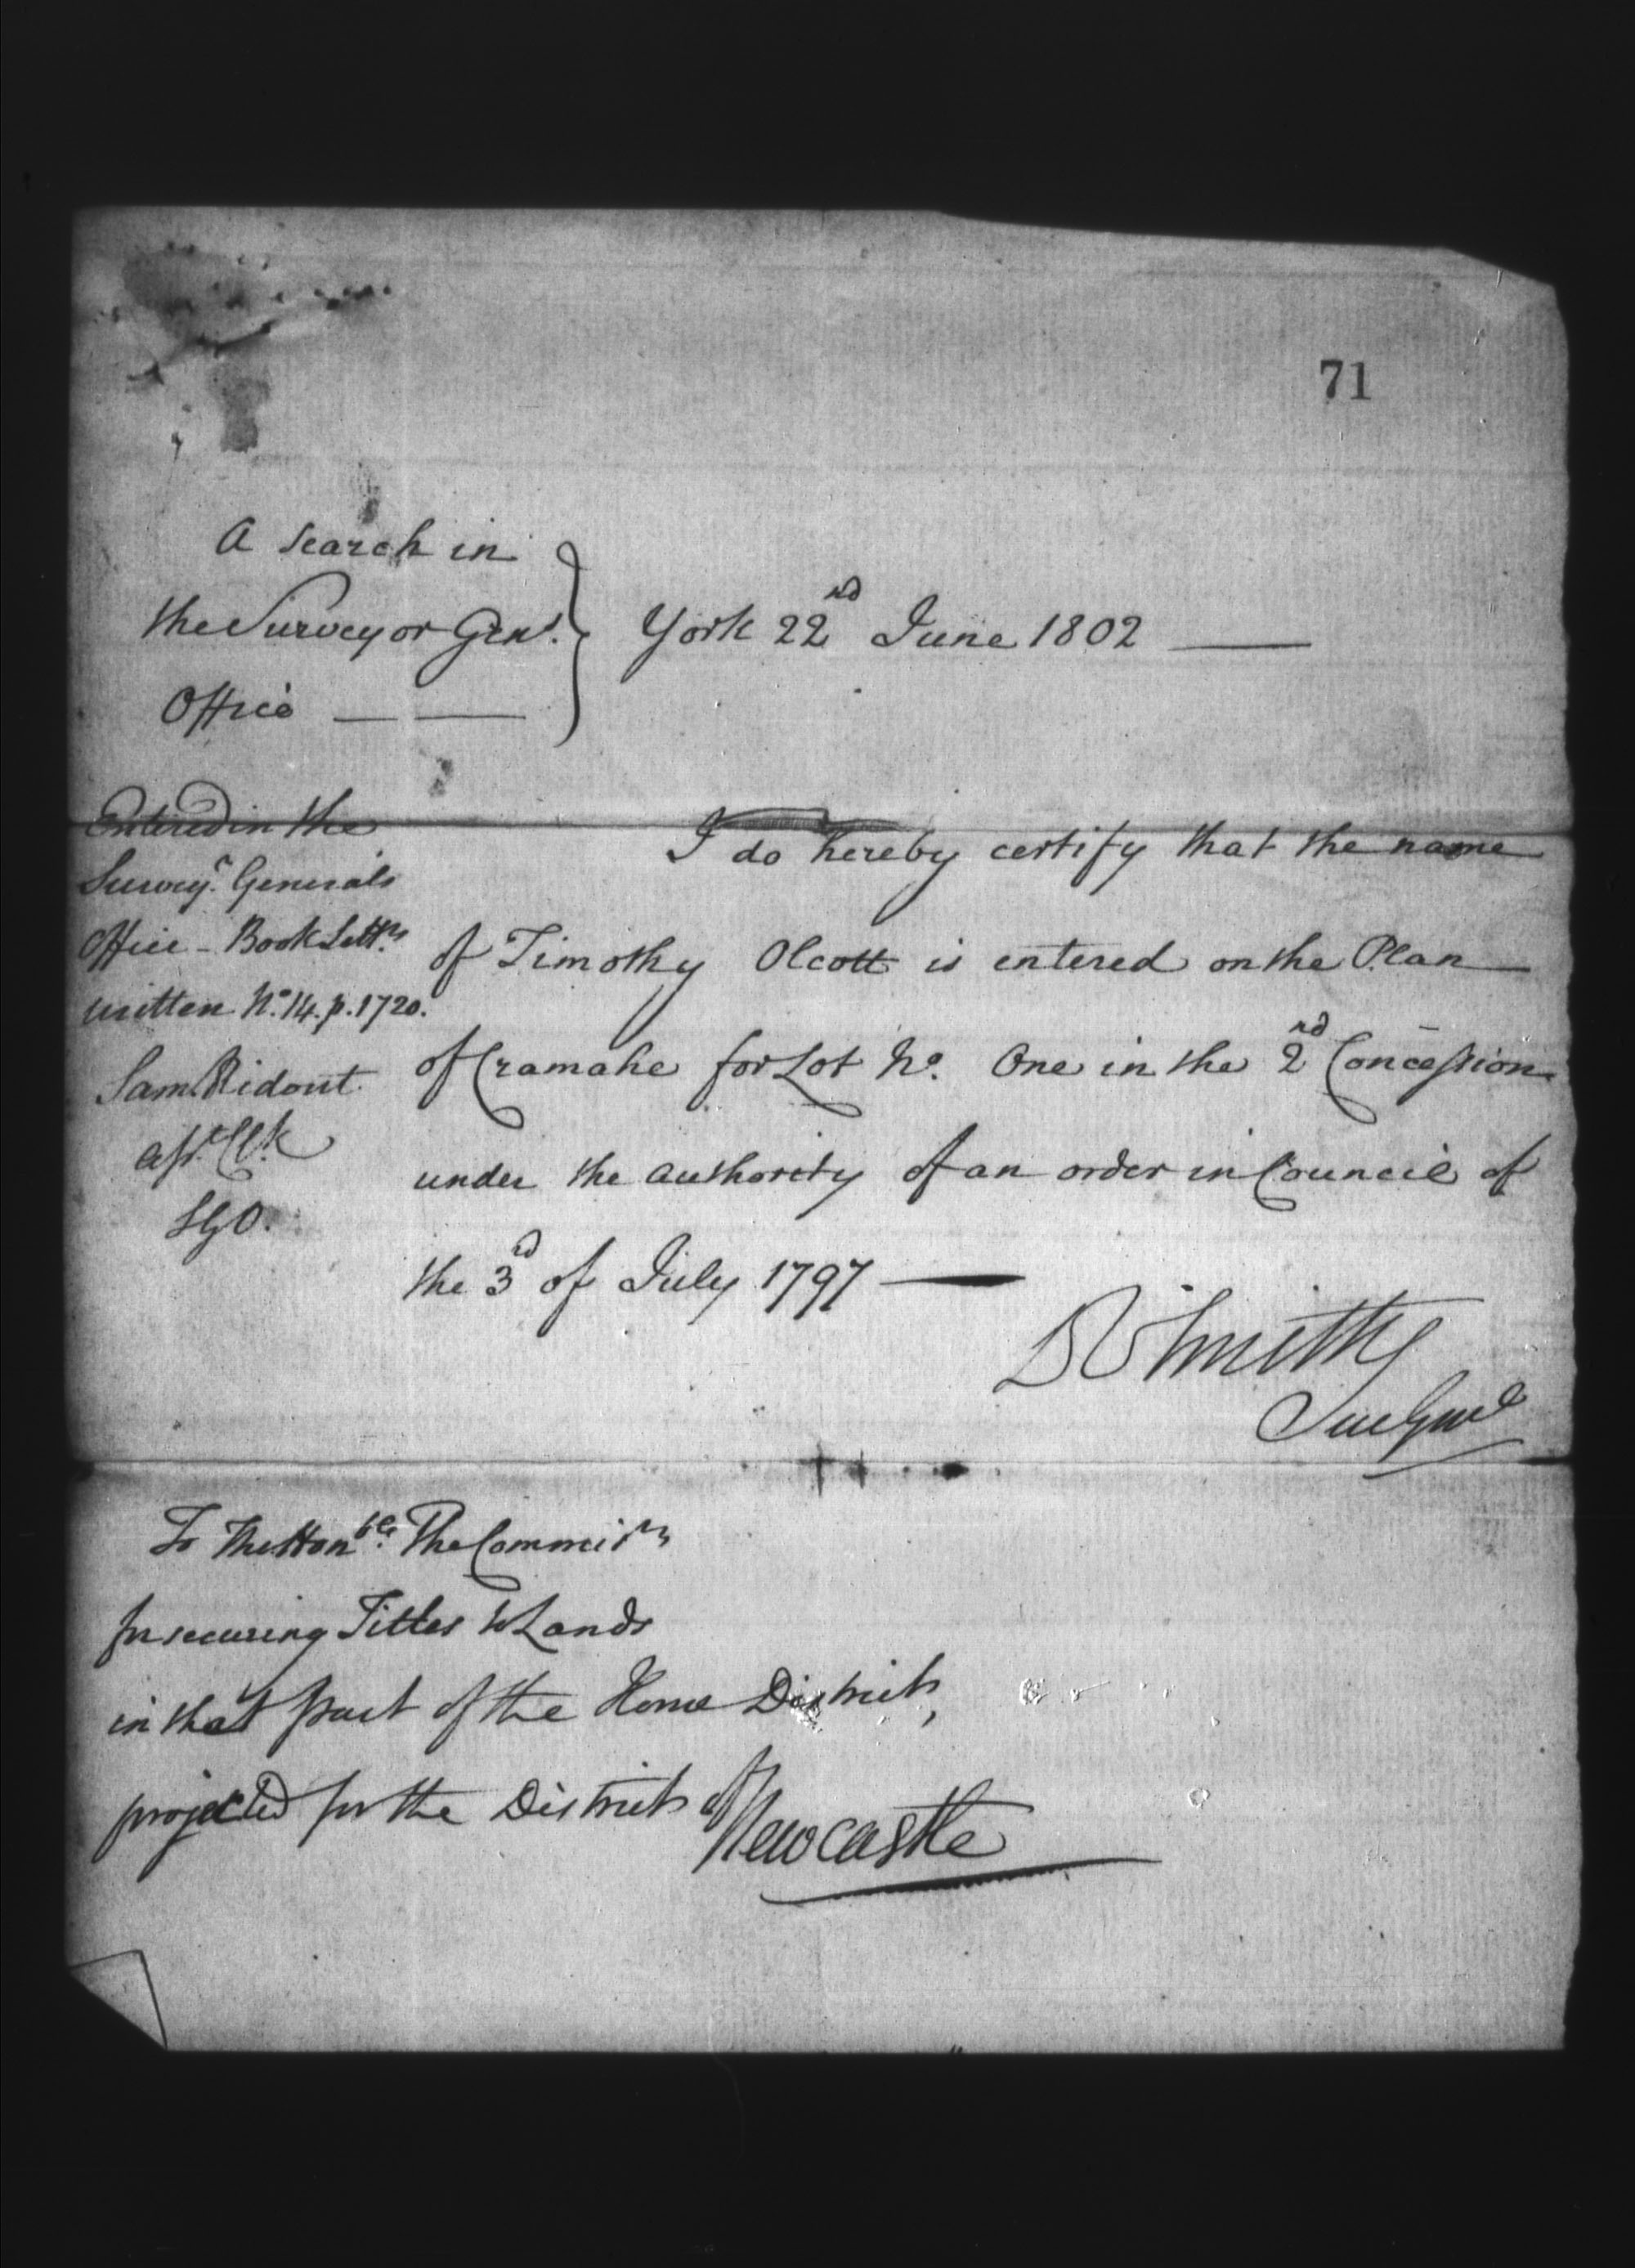 71
A search in
the Surveyor Genl.
Office — —
York 22nd June 1802 —
Entered in the
Surveyr. Generals
Office - Book Lettrs
written No. 14. p. 1720.
Sam. Ridout.
Asst. Clk
SGO.
I do hereby certify that the name
of Timothy Olcott is entered on the Plan
of Cramahe for Lot No. One in the 2nd Concession
under the authority of an order in Council of
the 3rd of July 1797 —
DW Smith
Sur Genl
To The Honble. The Commisrs
for securing Titles to Lands
in that part of the Home District,
projected for the District of
Newcastle